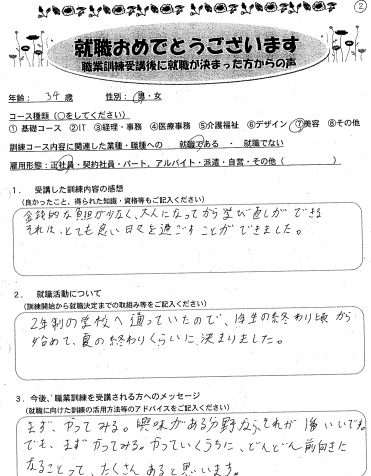 ②
就職おめでとうございます
職業訓練受講後に就職が決まった方からの声
年齢： 34 歳 性別： 男・女
コース種類（○をしてください）
① 基礎コース ②IT ③経理・事務 ④医療事務 ⑤介護福祉 ⑥デザイン ⑦美容 ⑧その他
訓練コース内容に関連した業種・職種への 就職である ・ 就職でない
雇用形態：正社員・契約社員・パート、アルバイト・派遣・自営・その他（ ）
１． 受講した訓練内容の感想
（良かったこと、得られた知識・資格等もご記入ください）
金銭的な負担が少なく、大人になってから学び直しができる
それは、とても良い日々を過ごすことができました。
２． 就職活動について
（訓練開始から就職決定までの取組み等をご記入ください）
2年制の学校へ通っていたので、1年生の終わり頃から
始めて、夏の終わりくらいに決まりました。
３．今後、職業訓練を受講される方へのメッセージ
（就職に向けた訓練の活用方法等のアドバイスをご記入ください）
まず、やってみる。興味がある分野なら、それが 1番いいです。
でも、まずやってみる。やっていくうちに、どんどん前向きに
なることって、たくさんあると思います。